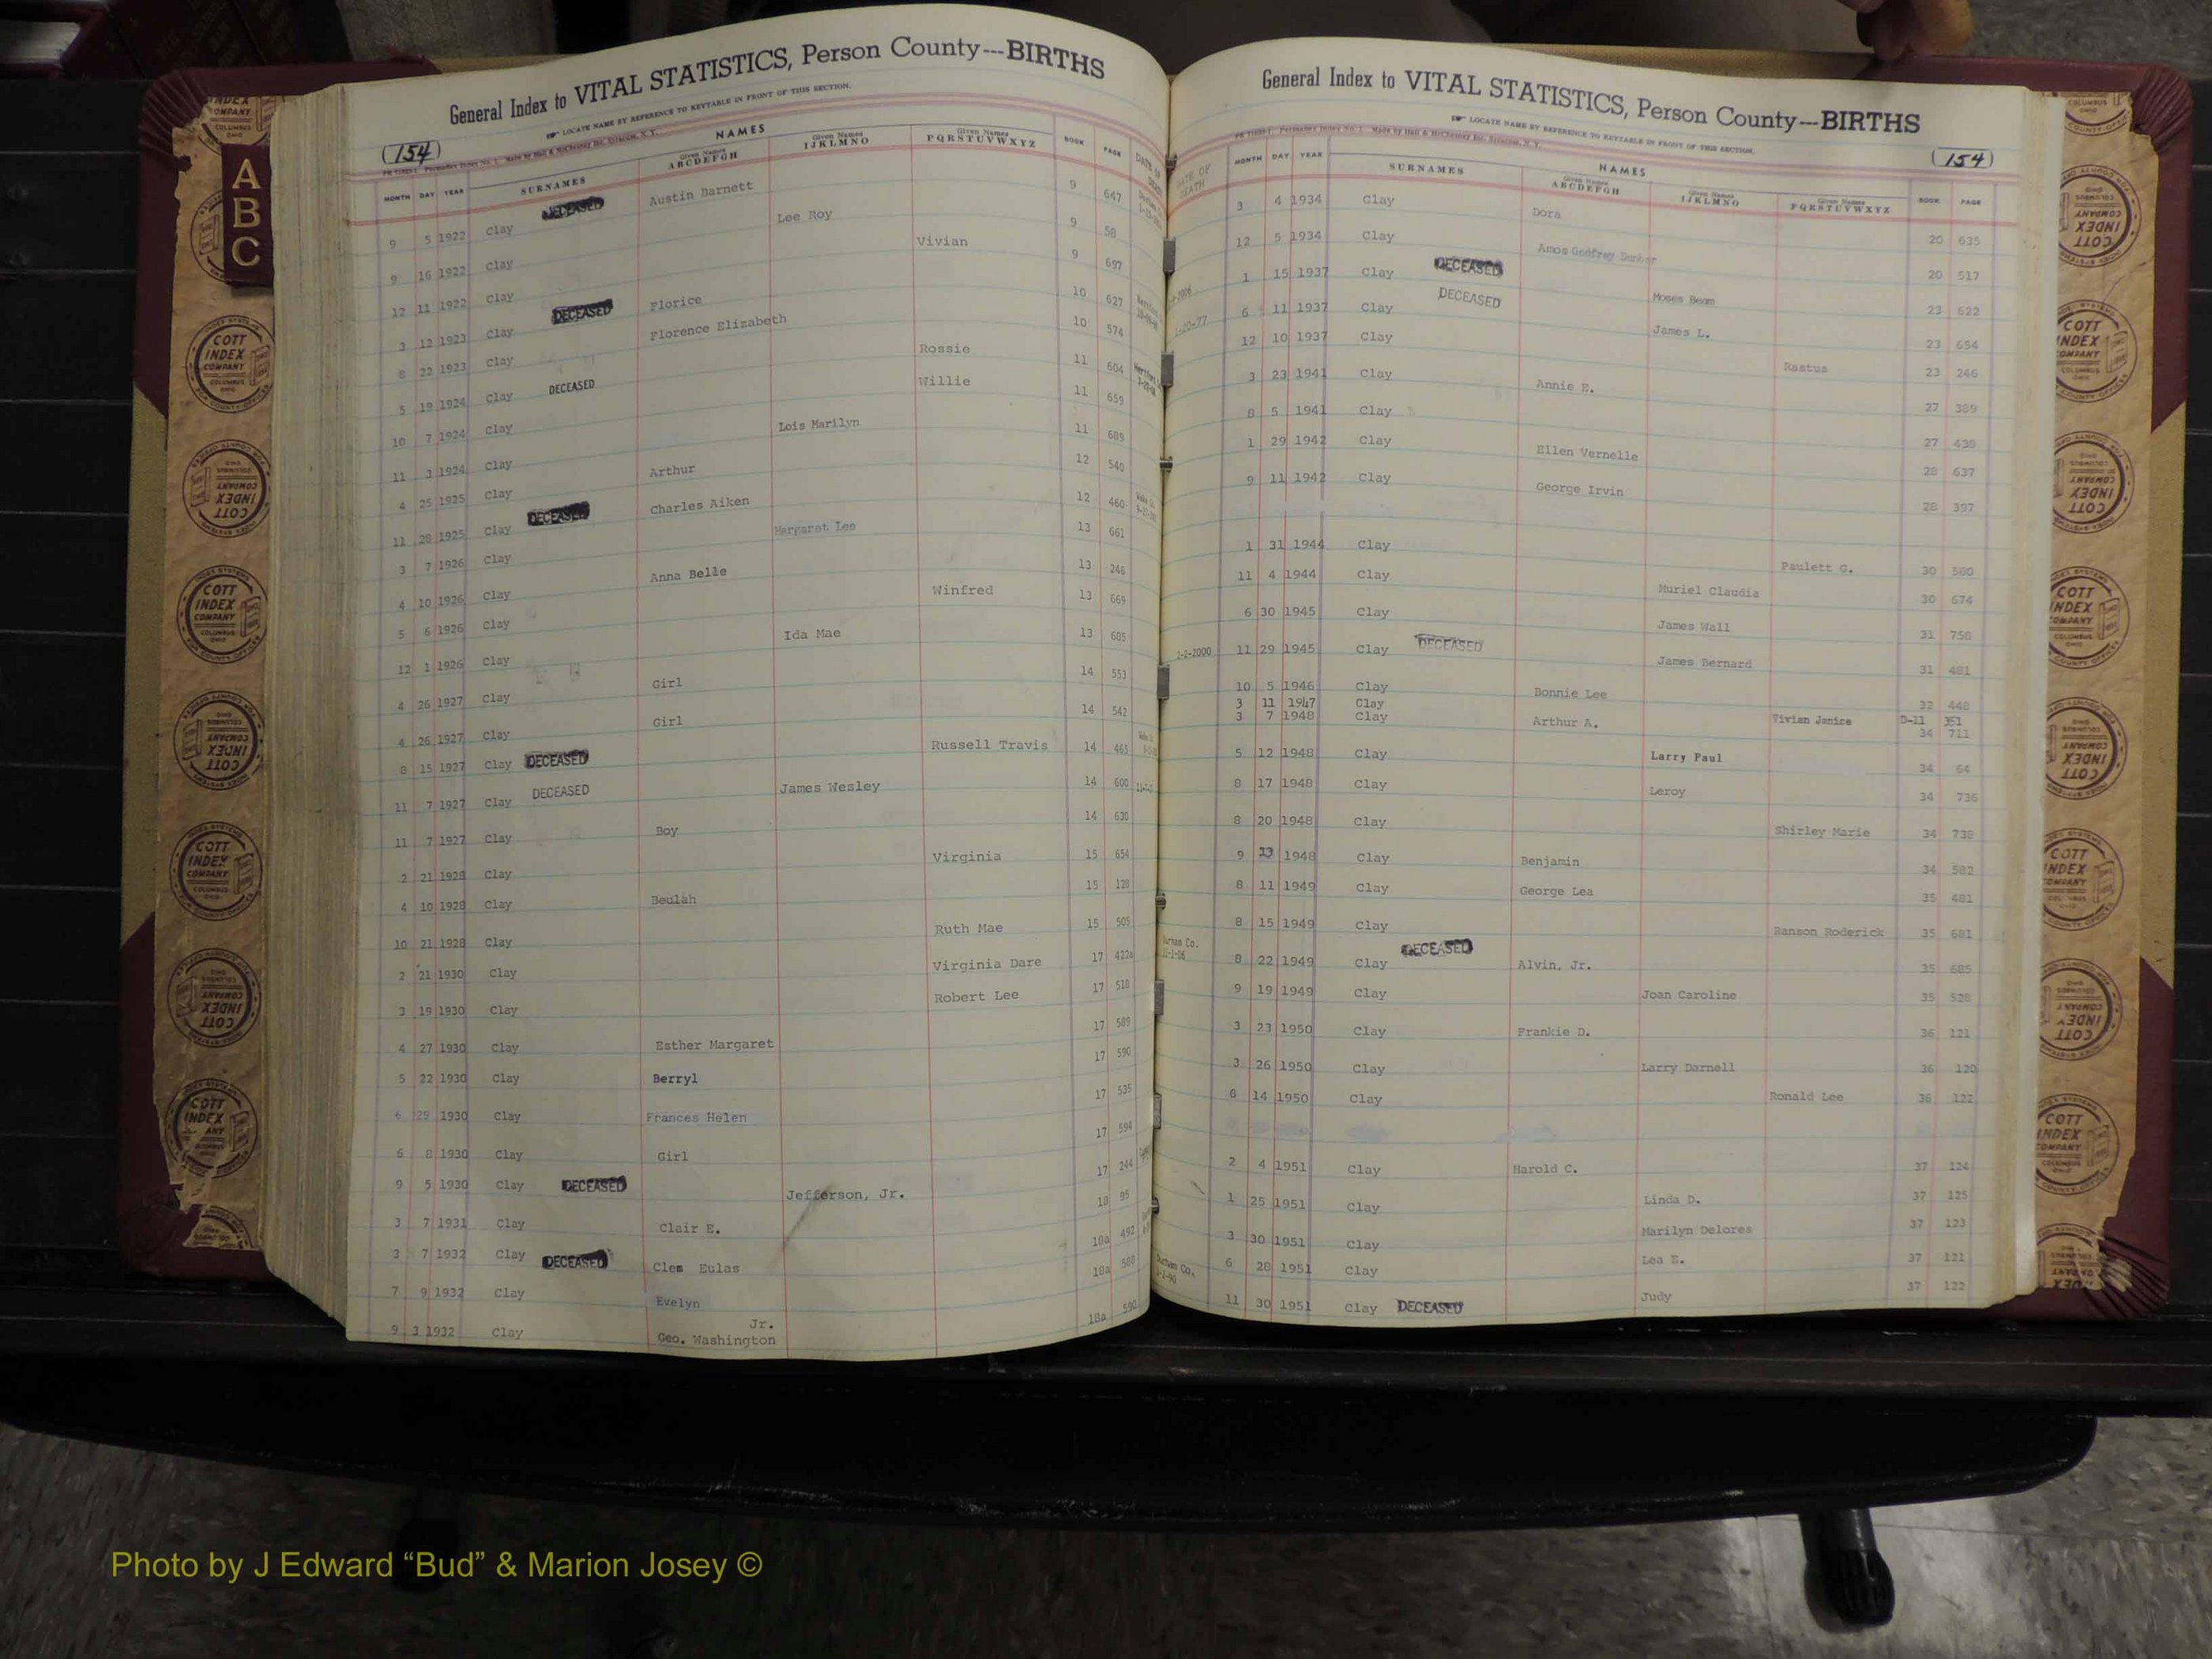 General Index to VITAL STATISTICS, Person County---BIRTHS
LOCATE NAME BY REFERENCE TO KEYTABLE IN FRONT OF THIS SECTION.
154
MONTH DAY YEAR SURNAMES NAMES Given Names ABCDEFGH Given Names IJKLMNO Given Names PQRSTUVWXYZ BOOK PAGE DATE OF DEATH
9 5 1922 Clay DECEASED Austin Barnett 9 647
9 16 1922 Clay Lee Roy 9 58
12 11 1922 Clay Vivian 9 697
3 12 1923 Clay DECEASED Florice 10 627
8 22 1923 Clay Florence Elizabeth 10 574
5 19 1924 Clay DECEASED Rossie 11 604
10 7 1924 Clay Willie 11 659
11 3 1924 Clay Lois Marilyn 11 689
4 25 1925 Clay Arthur 12 540
11 28 1925 Clay DECEASED Charles Aiken 12 460
3 7 1926 Clay Margaret Lee 13 661
4 10 1926 Clay Anna Belle 13 246
5 6 1926 Clay Winfred 13 669
12 1 1926 Clay Ida Mae 13 605
4 26 1927 Clay Girl 14 553
4 26 1927 Clay Girl 14 542
8 15 1927 Clay DECEASED Russell Travis 14 465
11 7 1927 Clay DECEASED James Wesley 14 600
11 7 1927 Clay Boy 14 630
2 21 1928 Clay Virginia 15 654
4 10 1928 Clay Beulah 15 128
10 21 1928 Clay Ruth Mae 15 505
2 21 1930 Clay Virginia Dare 17 422a
3 19 1930 Clay Robert Lee 17 518
4 27 1930 Clay Esther Margaret 17 589
5 22 1930 Clay Berryl 17 590
6 29 1930 Clay Frances Helen 17 535
6 8 1930 Clay Girl 17 594
9 5 1930 Clay DECEASED Jefferson, Jr. 17 244
3 7 1931 Clay Clair E. 18 95
3 7 1932 Clay DECEASED Clem Eulas 18a 492
7 9 1932 Clay Evelyn 18a 588
9 3 1932 Clay Geo. Washington Jr. 18a 590
General Index to VITAL STATISTICS, Person County---BIRTHS
LOCATE NAME BY REFERENCE TO KEYTABLE IN FRONT OF THIS SECTION.
154
DATE OF DEATH MONTH DAY YEAR SURNAMES NAMES Given Names ABCDEFGH Given Names IJKLMNO Given Names PQRSTUVWXYZ BOOK PAGE
3 4 1934 Clay Dora 20 635
12 5 1934 Clay Amos Godfrey Dunbar 20 517
1 15 1937 Clay DECEASED Moses Beam 23 622
6 11 1937 Clay DECEASED James L. 23 654
12 10 1937 Clay Rastus 23 246
3 23 1941 Clay Annie E. 27 389
8 5 1941 Clay 27 438
1 29 1942 Clay Ellen Vernelle 28 637
9 11 1942 Clay George Irvin 28 397
1 31 1944 Clay Paulett G. 30 580
11 4 1944 Clay Muriel Claudia 30 674
6 30 1945 Clay James Wall 31 756
1-2-2000 11 29 1945 Clay DECEASED James Bernard 31 481
10 5 1946 Clay Bonnie Lee 32 448
3 11 1947 Clay Vivian Janice D-11 351
3 7 1948 Clay Arthur A. 34 711
5 12 1948 Clay Larry Paul 34 64
8 17 1948 Clay Leroy 34 736
8 20 1948 Clay Shirley Marie 34 738
9 13 1948 Clay Benjamin 34 582
8 11 1949 Clay George Lea 35 481
8 15 1949 Clay Ranson Roderick 35 681
Durham Co. 11-1-06 8 22 1949 Clay DECEASED Alvin, Jr. 35 685
9 19 1949 Clay Joan Caroline 35 528
3 23 1950 Clay Frankie D. 36 121
3 26 1950 Clay Larry Darnell 36 120
6 14 1950 Clay Ronald Lee 36 122
2 4 1951 Clay Harold C. 37 124
1 25 1951 Clay Linda D. 37 125
3 30 1951 Clay Marilyn Delores 37 123
6 28 1951 Clay Lea E. 37 121
11 30 1951 Clay DECEASED Judy 37 122
A
B
C
COTT INDEX COMPANY
COLUMBUS OHIO
Photo by J Edward “Bud” & Marion Josey ©